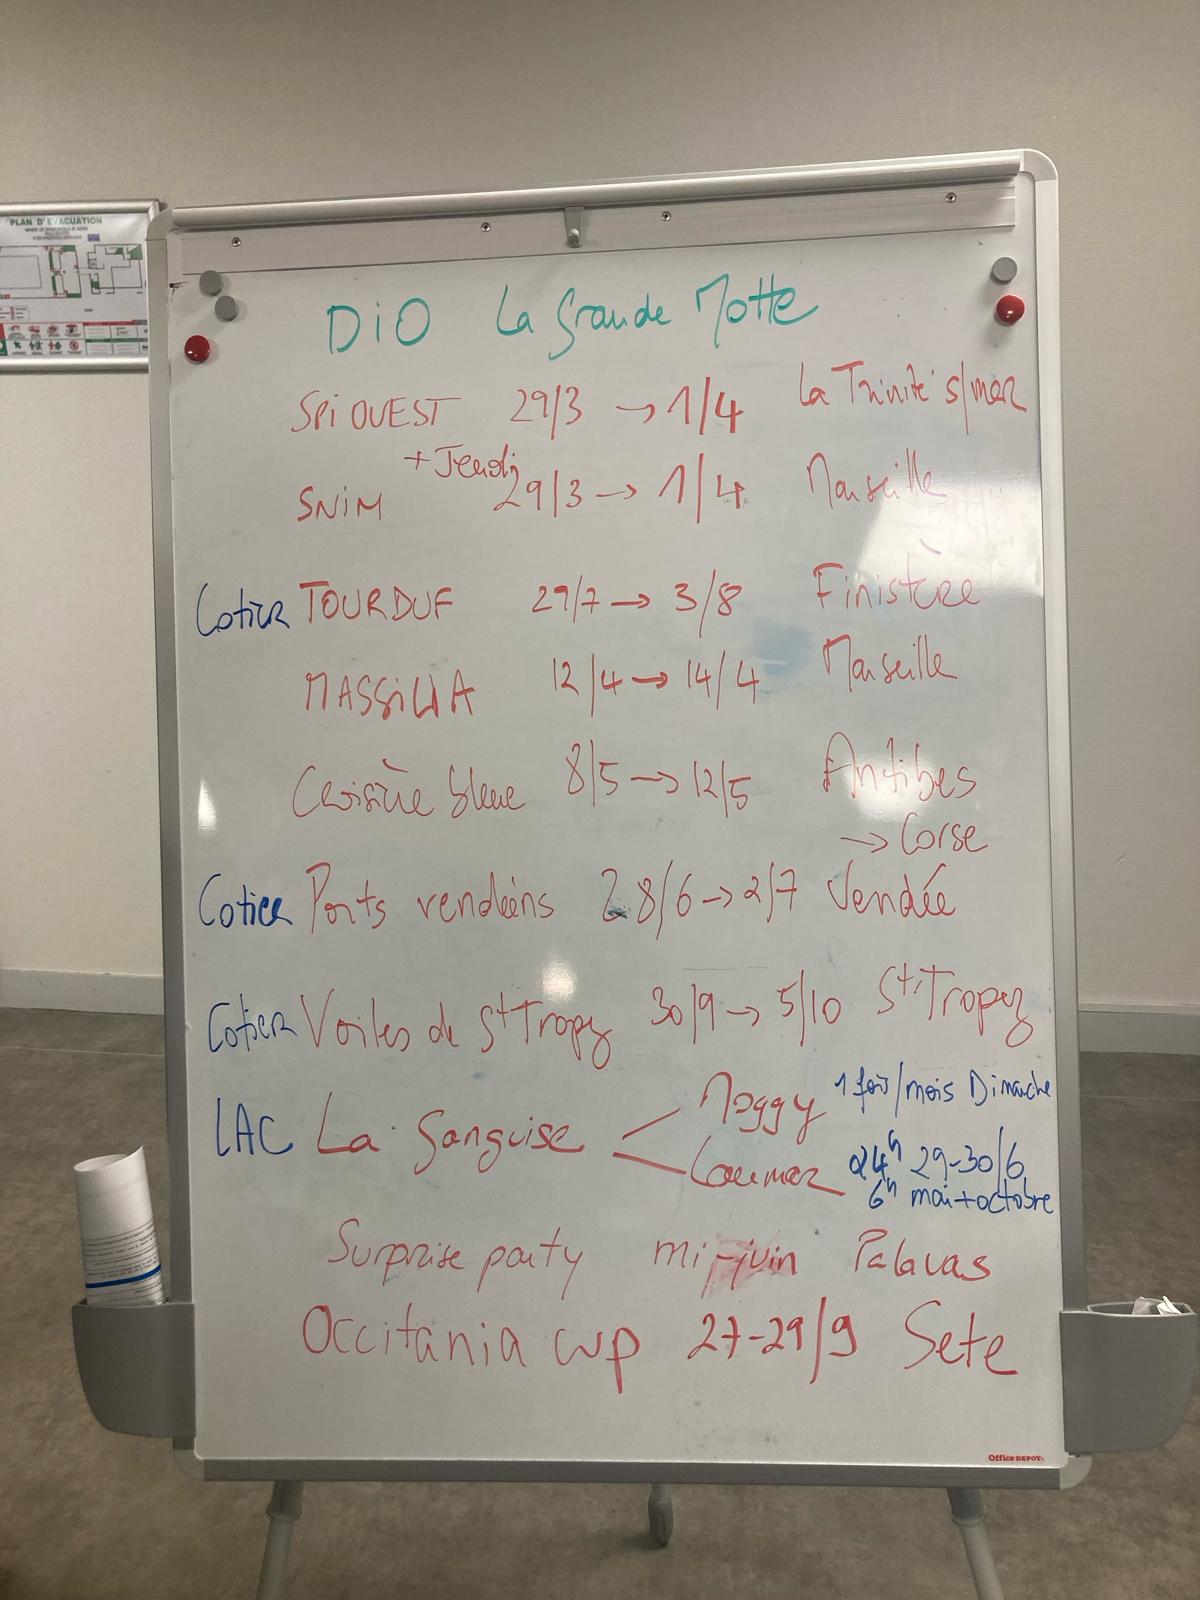 PLAN D'EVACUATION
DiO La Grande Motte
SPI OUEST 29/3 → 1/4 La Trinité s/mer
+ Jeudi
SNIM 29/3 → 1/4 Marseille
Cotier TOURDUF 29/7 → 3/8 Finistère
MASSILIA 12/4 → 14/4 Marseille
Croisière bleue 8/5 → 12/5 Antibes
→ Corse
Cotier Ports vendéens 28/6 → 2/7 Vendée
Cotier Voiles de St Tropez 30/9 → 5/10 St Tropez
LAC La Ganguise < Moggy 1 fois/mois Dimanche
Laumar 24h 29-30/6
6h mai + octobre
Surprise party mi-juin Palavas
Occitània cup 27-29/9 Sete
Office DEPOT